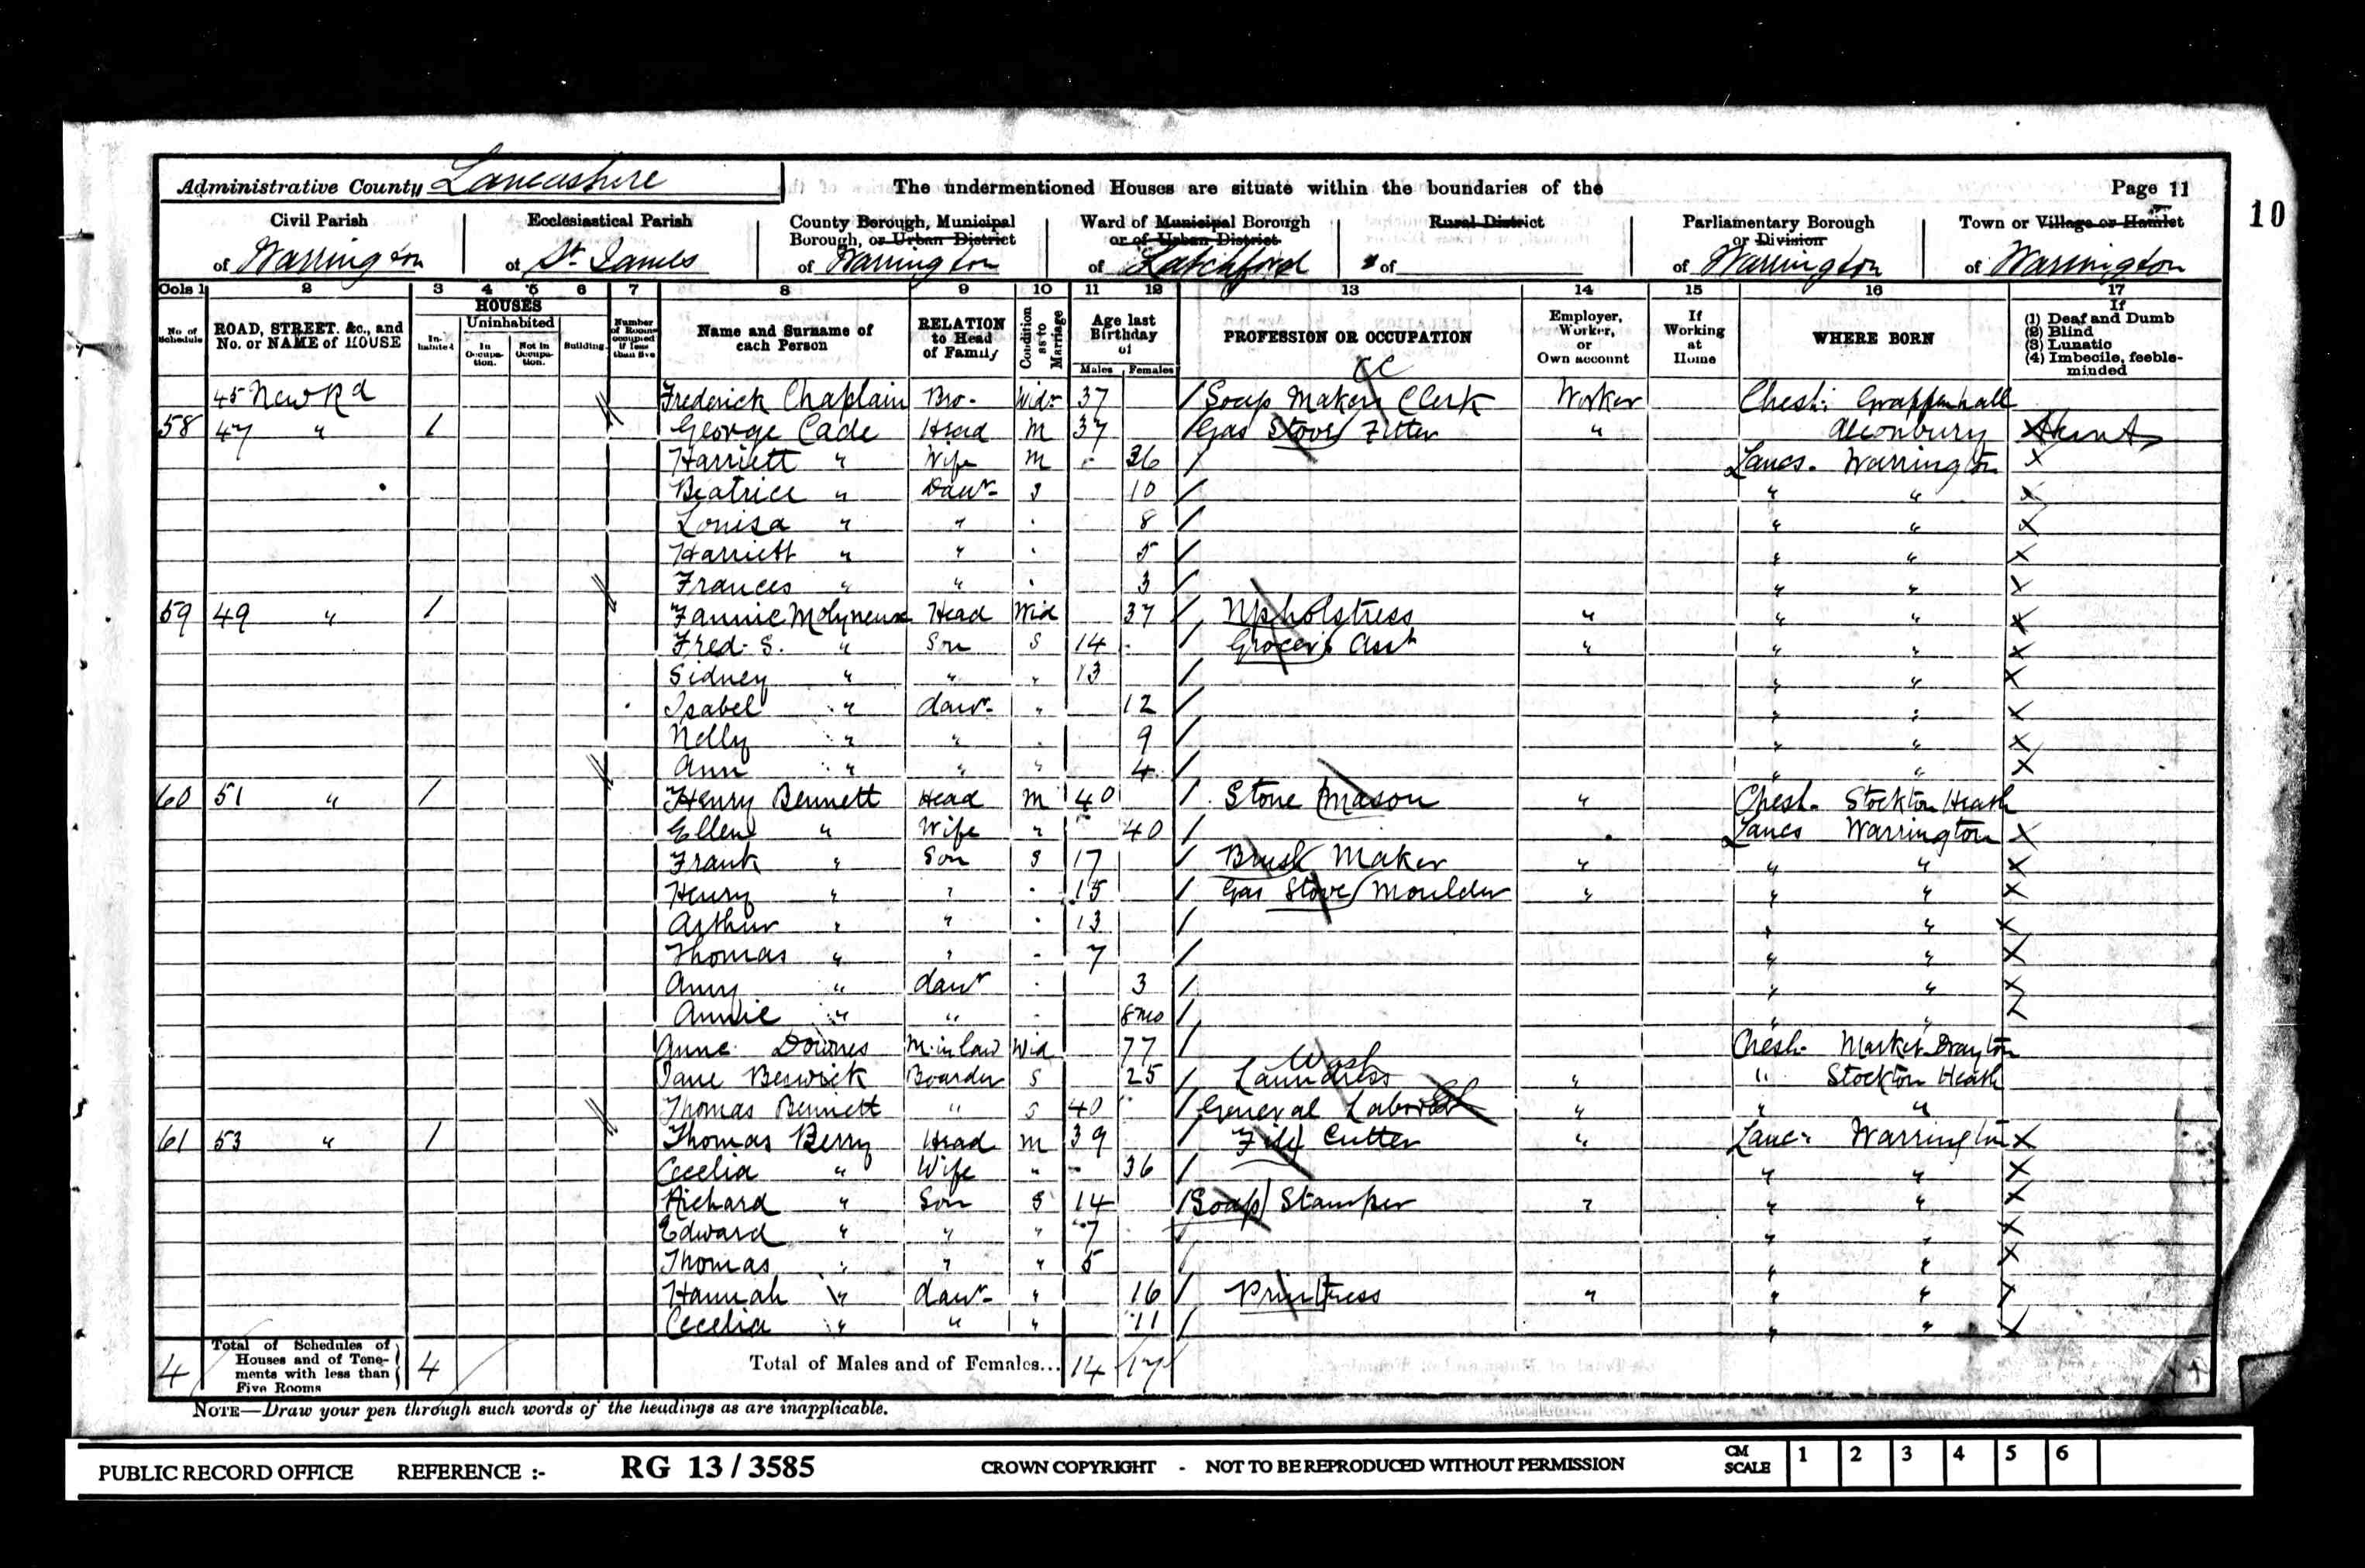 Administrative County Lancashire The undermentioned Houses are situate within the boundaries of the Page 11
10
Civil Parish Ecclesiastical Parish County Borough, Municipal Ward of Municipal Borough Rural District Parliamentary Borough Town or Village or Hamlet
Borough, or Urban District or of Urban District or Division
of Warrington of St. James of Warrington of Latchford of of Warrington of Warrington
Cols 1 2 3 4 5 6 7 8 9 10 11 12 13 14 15 16 17
No. of Schedule ROAD, STREET, &c., and No. or NAME of HOUSE HOUSES In-habited Uninhabited In Occupa-tion. Not in Occupa-tion. Building Number of Rooms occupied if less than five Name and Surname of each Person RELATION to Head of Family Condition as to Marriage Age last Birthday of Males Females PROFESSION OR OCCUPATION Employer, Worker, or Own account If Working at Home WHERE BORN If (1) Deaf and Dumb (2) Blind (3) Lunatic (4) Imbecile, feeble-minded
45 New Rd Frederick Chaplain Bro. Widr 37 Soap Makers Clerk Worker Chesh: Grappenhall
58 47 " 1 George Cade Head M 37 Gas Stove Fitter " Alconbury Hunts
Harriett " Wife M 36 Lancs. Warrington X
Beatrice " Daur S 10 " " X
Louisa " " 8 " " X
Harriett " " 5 " " X
Frances " " 3 " " X
59 49 " 1 Fannie Molyneux Head Wid 37 Upholstress " " " X
Fred. S. " Son S 14 Grocers Asst " " " X
Sidney " " " 13 " " X
Isabel " daur " 12 " " X
Nelly " " 9 " " X
Ann " " " 4 " " X
60 51 " 1 Henry Bennett Head M 40 Stone Mason " Chesh. Stockton Heath
Ellen " Wife " 40 Lancs Warrington X
Frank " Son S 17 Brush Maker " " " X
Henry " " 15 Gas Stove Moulder " " " X
Arthur " " 13 " " X
Thomas " " 7 " " X
Amy " daur 3 " " X
Annie " " 8 mo " " X
Anne Downes M. in law Wid 77 Chesh. Market Drayton
Jane Beswick Boarder S 25 Wash Laundress " " Stockton Heath
Thomas Bennett " S 40 General Labourer " " "
61 53 " 1 Thomas Berry Head M 39 File Cutter " Lancs Warrington X
Cecelia " Wife " 36 " " X
Richard " Son S 14 Soap Stamper " " " X
Edward " " " 7 " " X
Thomas " " " 5 " " X
Hannah " daur " 16 Printress " " " X
Cecelia " " " 11 " " X
4 Total of Schedules of Houses and of Tene-ments with less than Five Rooms 4 Total of Males and of Females... 14 17
NOTE—Draw your pen through such words of the headings as are inapplicable.
PUBLIC RECORD OFFICE REFERENCE :- RG 13 / 3585 CROWN COPYRIGHT - NOT TO BE REPRODUCED WITHOUT PERMISSION CM SCALE 1 2 3 4 5 6